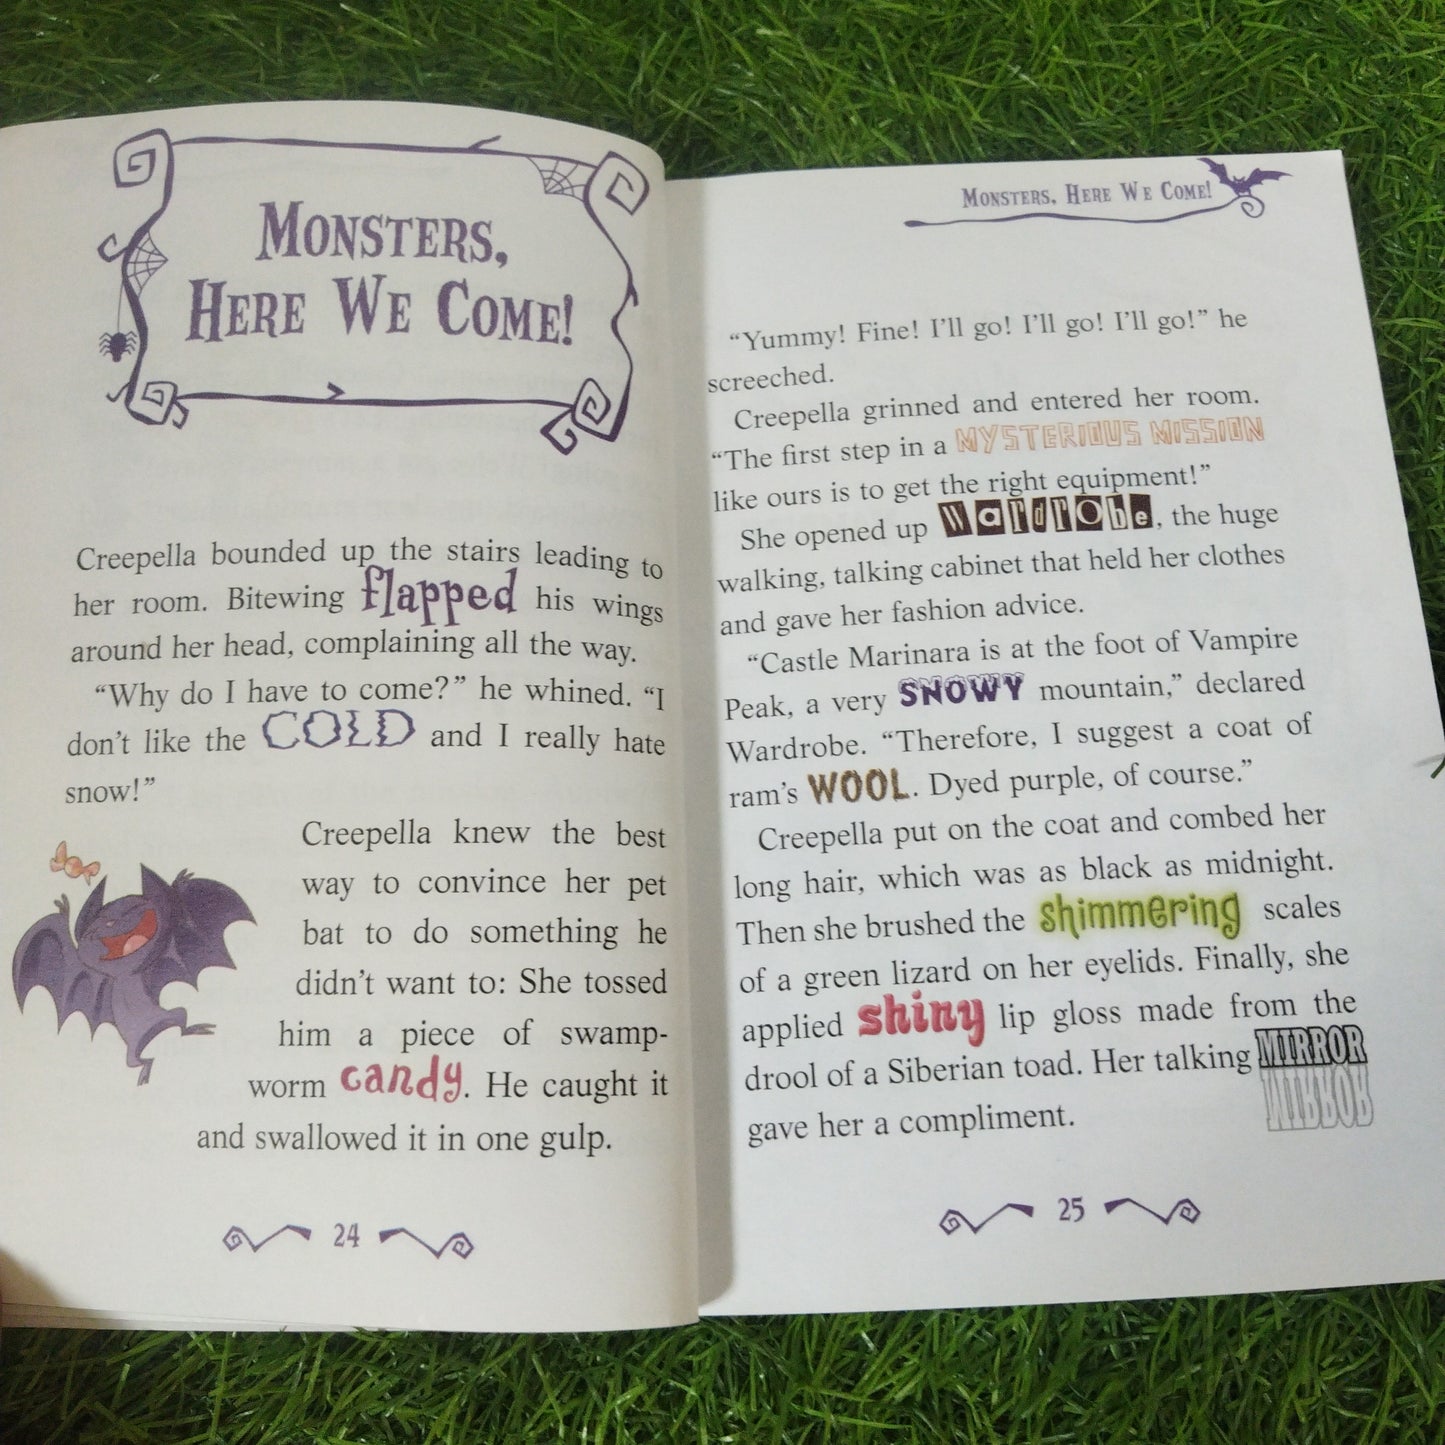 MONSTERS,
HERE WE COME!
Creepella bounded up the stairs leading to
her room. Bitewing flapped his wings
around her head, complaining all the way.
“Why do I have to come?” he whined. “I
don’t like the COLD and I really hate
snow!”
Creepella knew the best
way to convince her pet
bat to do something he
didn’t want to: She tossed
him a piece of swamp-
worm candy. He caught it
and swallowed it in one gulp.
24
MONSTERS, HERE WE COME!
“Yummy! Fine! I’ll go! I’ll go! I’ll go!” he
screeched.
Creepella grinned and entered her room.
“The first step in a MYSTERIOUS MISSION
like ours is to get the right equipment!”
She opened up Wardrobe, the huge
walking, talking cabinet that held her clothes
and gave her fashion advice.
“Castle Marinara is at the foot of Vampire
Peak, a very SNOWY mountain,” declared
Wardrobe. “Therefore, I suggest a coat of
ram’s WOOL. Dyed purple, of course.”
Creepella put on the coat and combed her
long hair, which was as black as midnight.
Then she brushed the shimmering scales
of a green lizard on her eyelids. Finally, she
applied shiny lip gloss made from the
drool of a Siberian toad. Her talking MIRROR
gave her a compliment.
25